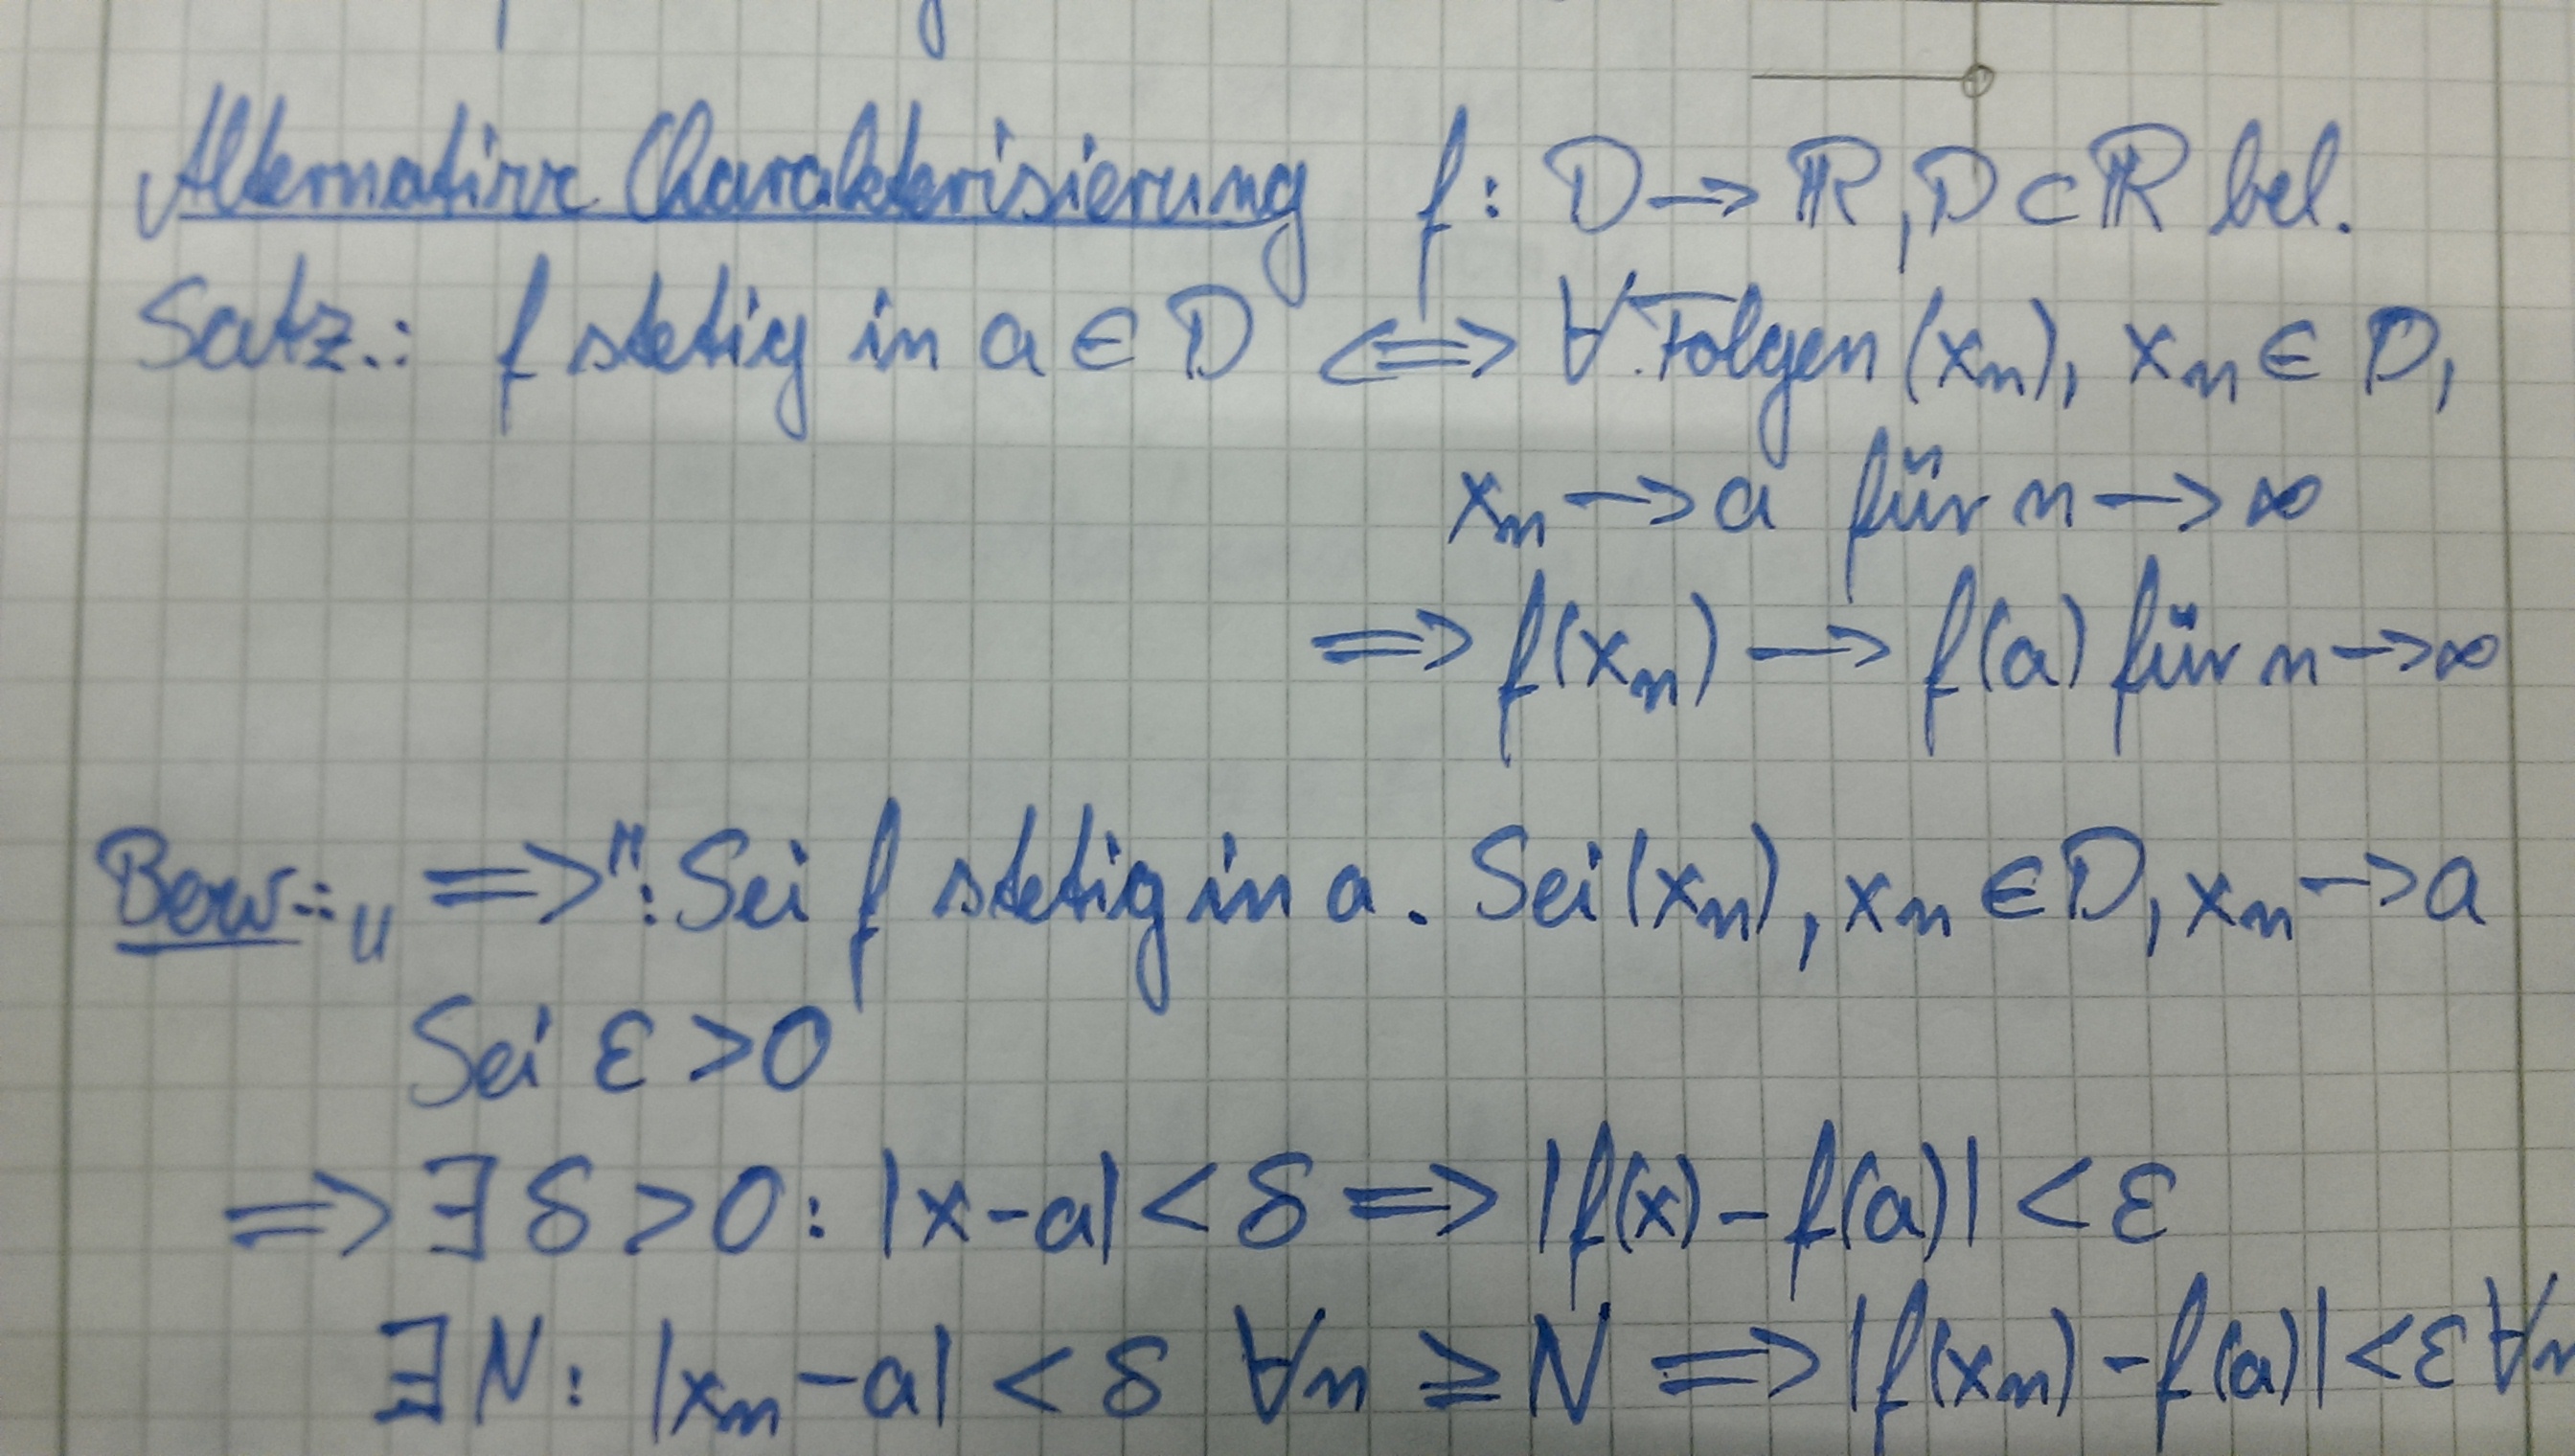 Alternative Charakterisierung f: D → ℝ, D ⊂ ℝ bel.
Satz.: f stetig in a ∈ D ⟺ ∀ Folgen (xₙ), xₙ ∈ D,
xₙ → a für n → ∞
⟹ f(xₙ) → f(a) für n → ∞
Bew.: „⟹": Sei f stetig in a. Sei (xₙ), xₙ ∈ D, xₙ → a
Sei ε > 0
⟹ ∃ δ > 0: |x-a| < δ ⟹ |f(x) - f(a)| < ε
∃ N: |xₙ - a| < δ ∀n ≥ N ⟹ |f(xₙ) - f(a)| < ε ∀n